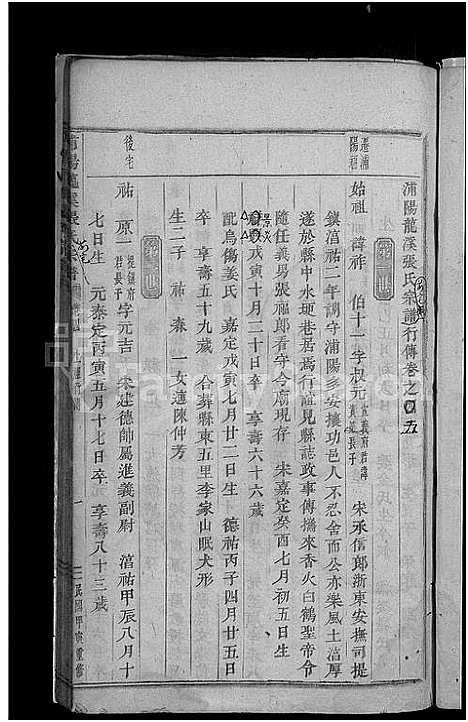 浦陽龍溪張氏宗譜行傳卷之
五
遷浦
陽祖
始祖 諱祚 伯十一字叔元
長子 宋承信郎浙東安撫司提
鎮淳祐二年調守浦陽多安撫功邑人不忍舍而公亦樂風土淳厚
遂於縣中水埂巷居焉行誼見縣誌政事傳攜來香火白鶴聖帝令
隨任義男張福郎看守今廟現存 宋嘉定癸酉七月初五日生
景炎
戊寅十月三十日卒 享壽六十六歲
配烏傷姜氏 嘉定戊寅七月廿二日生 德祐丙子四月廿五日
卒 享壽五十九歲 合葬縣東五里李家山眠犬形
生二子 祐 森 一女適陳仲芳
後宅
祐 原一 提鎮府
君長子 字元吉 宋建德帥屬進義副尉 淳祐甲辰八月十
七日生 元泰定丙寅五月十七日卒 享壽八十三歲
一
民國甲寅重修